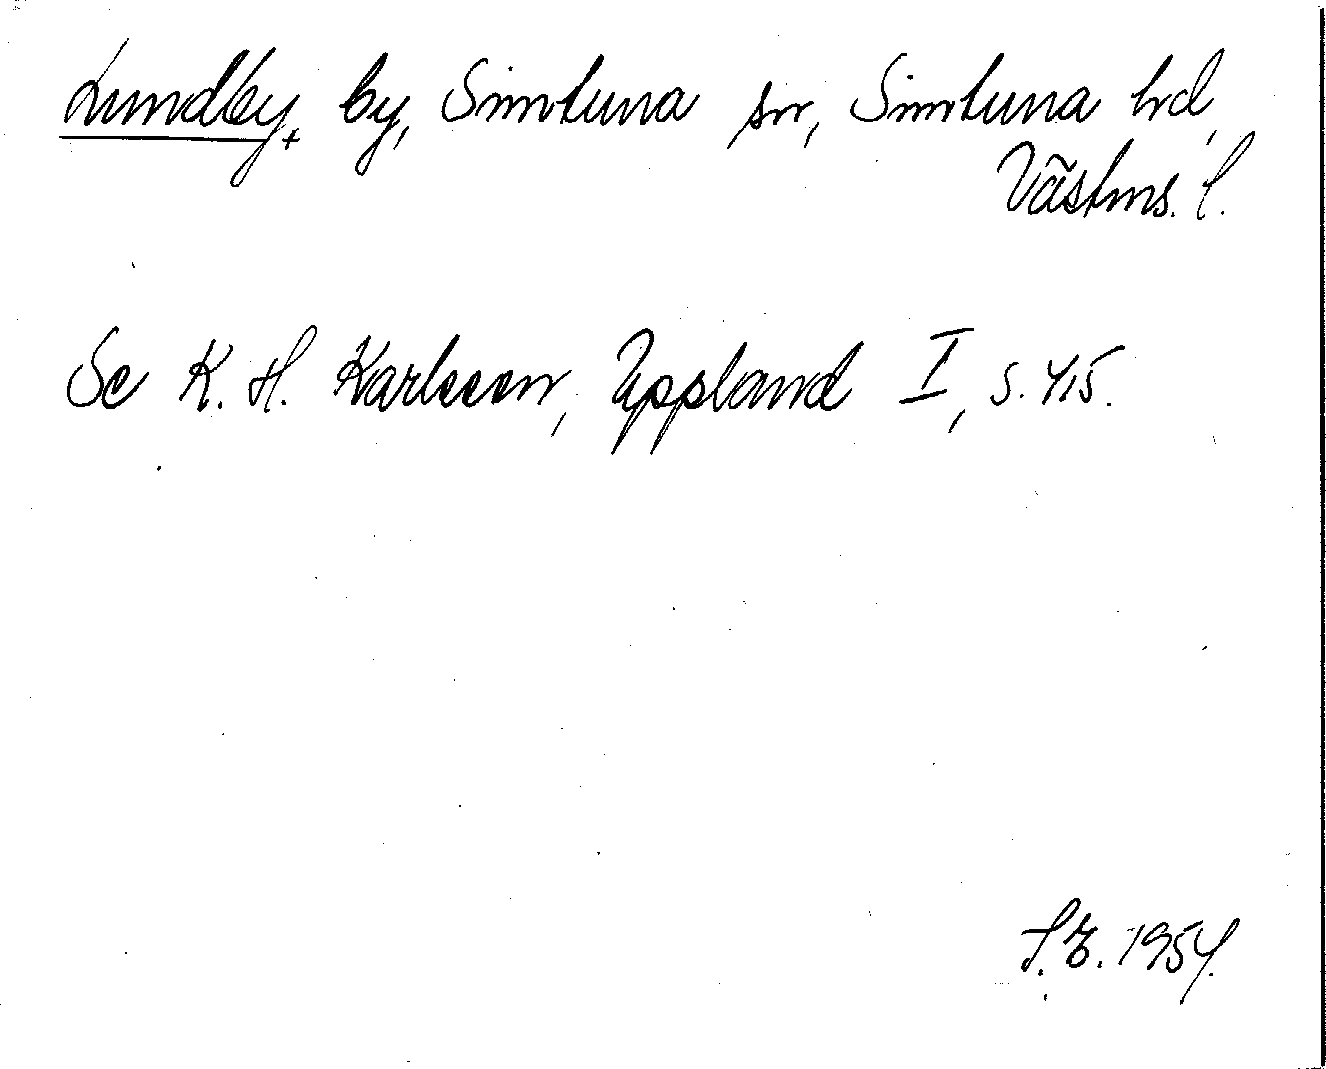 Lundby, by, Simtuna sn, Simtuna hd,
Västms. l.
Se K. H. Karlsson, Uppland I, s. 415.
S.E. 1954.